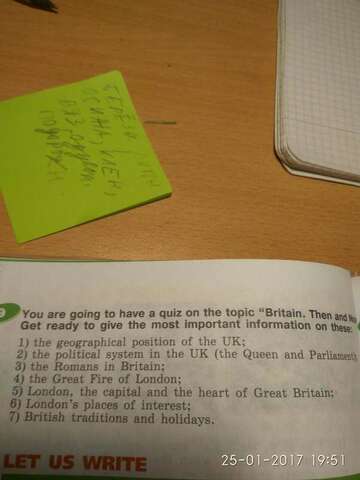 БЕРЕЗА
ОСИНА, КЛЕН,
ВЯЗ, одуван.
подорожн.
9 You are going to have a quiz on the topic "Britain. Then and
Get ready to give the most important information on these:
1) the geographical position of the UK;
2) the political system in the UK (the Queen and Parliament)
3) the Romans in Britain;
4) the Great Fire of London;
5) London, the capital and the heart of Great Britain;
6) London's places of interest;
7) British traditions and holidays.
LET US WRITE
25-01-2017 19:51